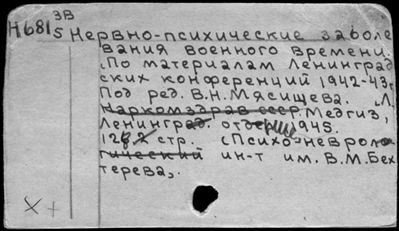 ЗВ
Н681 5 Нервно-психические заболе
вания военного времени.
"По материалам Ленинград
ских конференций 1942-43г.
Под ред. В.Н. Мясищева. Л.
Наркомздрав ссср. Медгиз,
Ленинград. отд. 1945.
стр. "Психо-невроло
гический ин-т им. В.М. Бех
терева".
X +